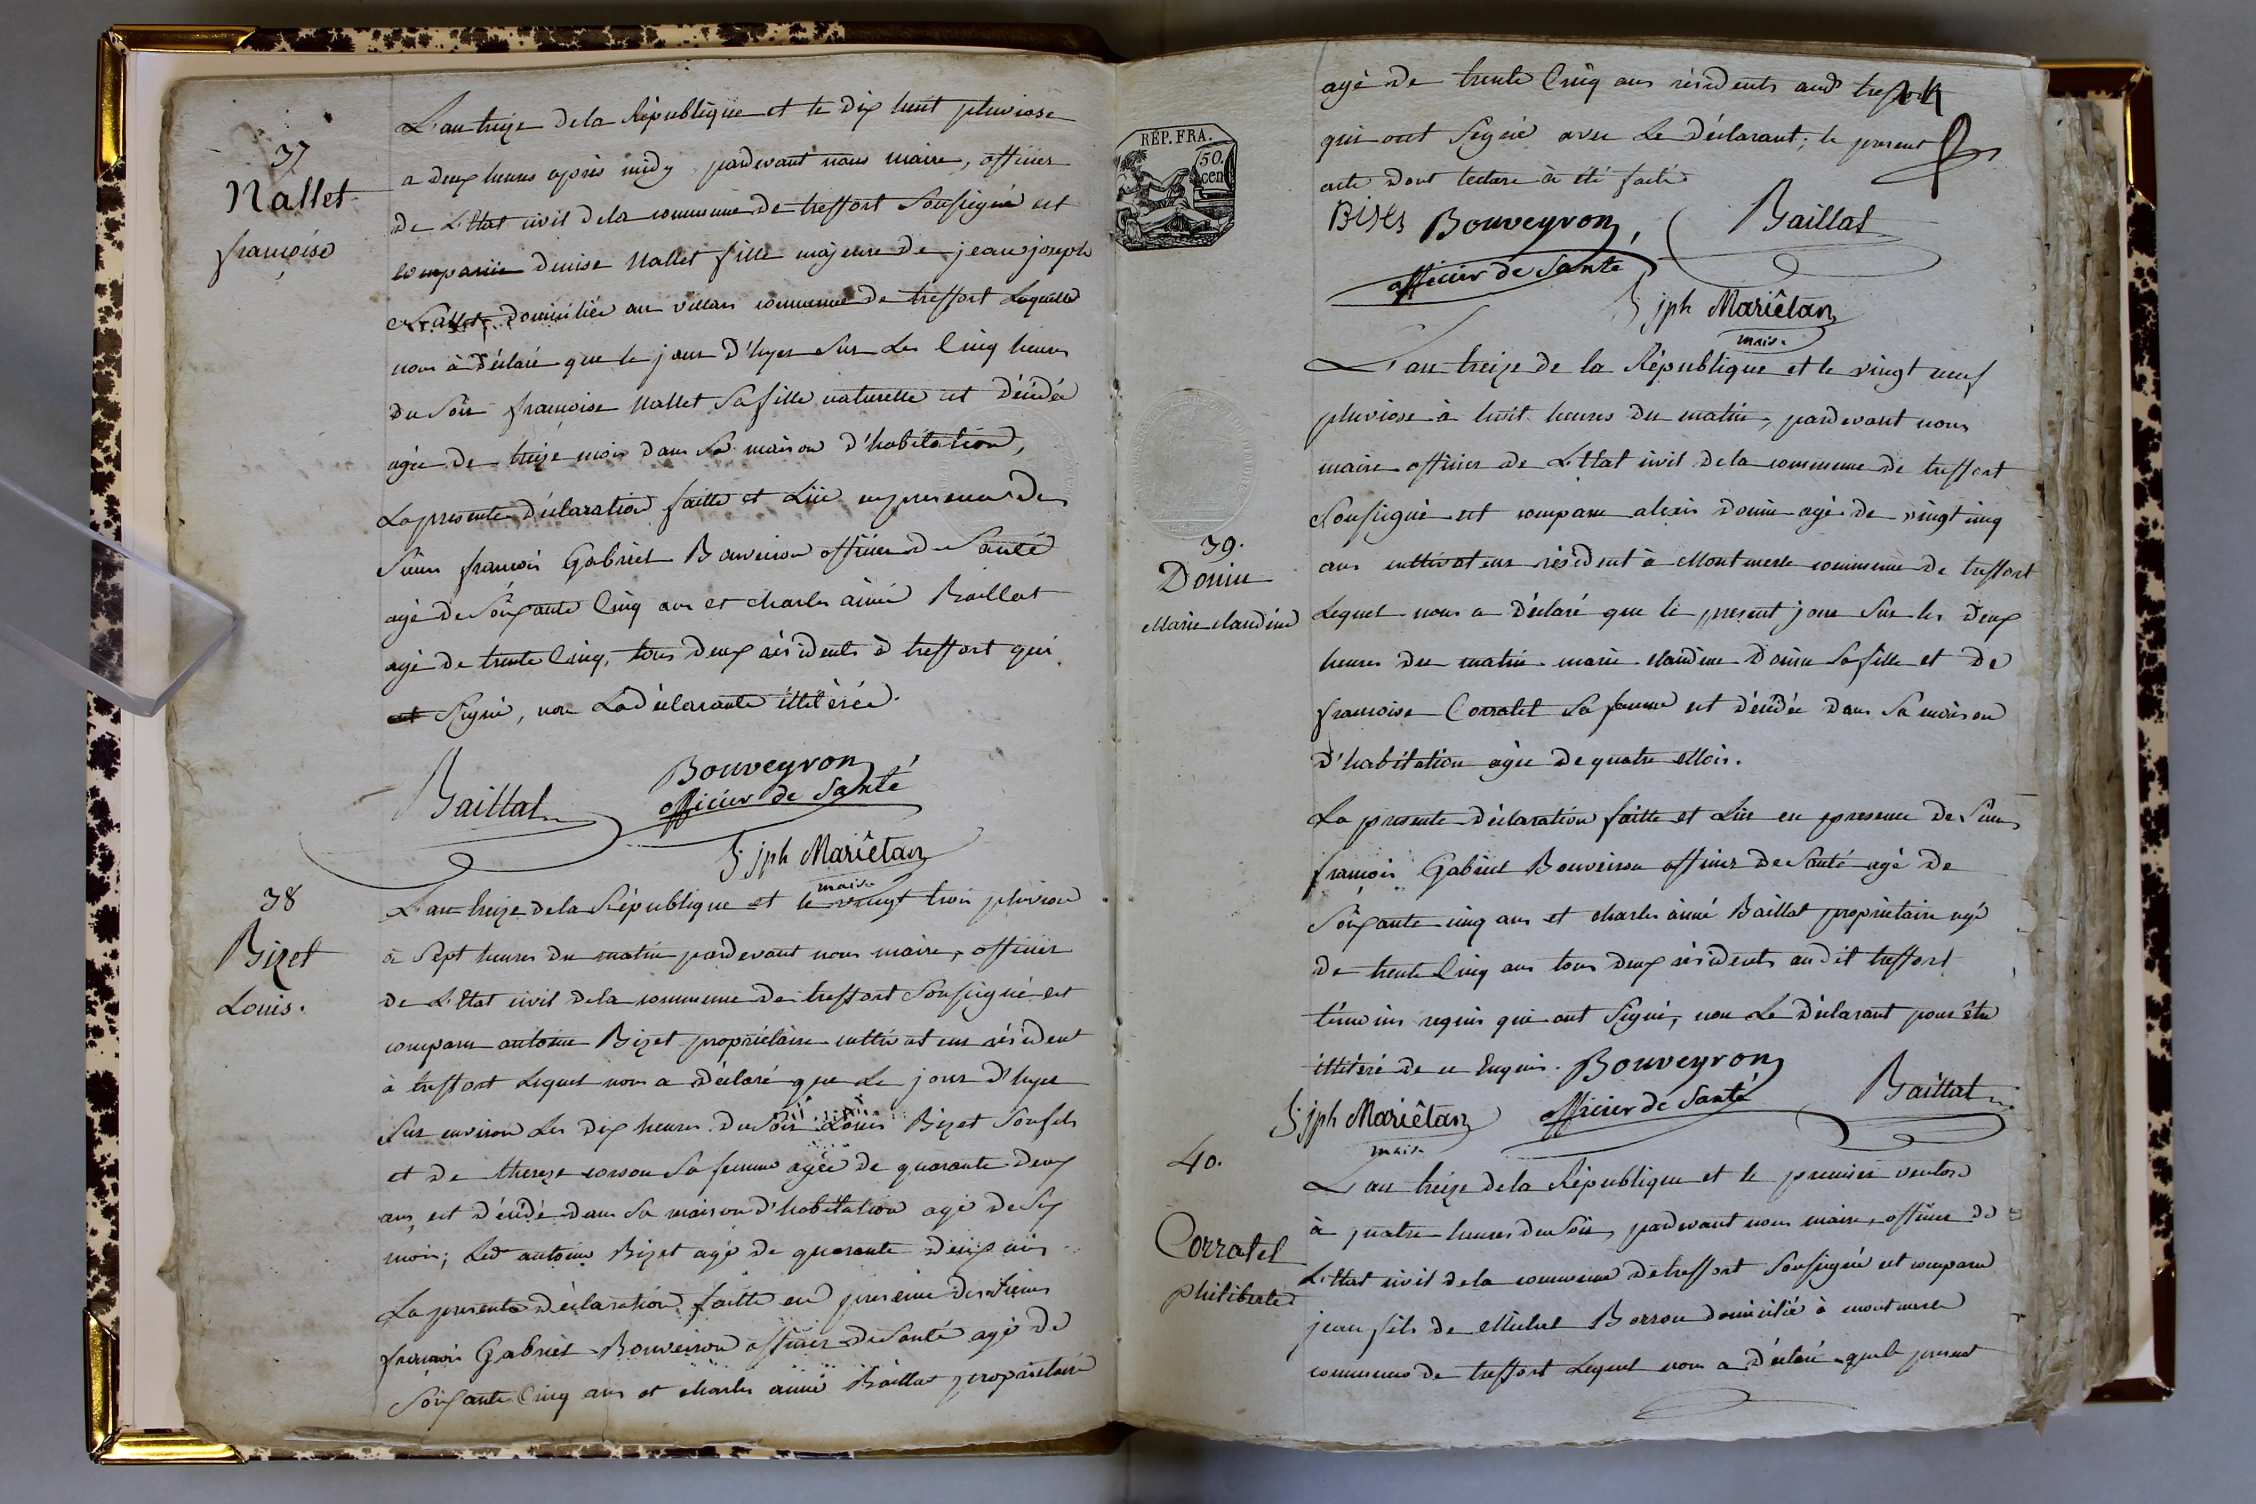 37
Nallet
françoise
L'an treize de la République et le dix huit pluviose
a deux heures après midy pardevant nous maire, officier
de L'Etat civil de la commune de treffort Soussigné est
comparüe denise Nallet fille majeure de jean joseph
Nallet, domiciliée au villars commune de treffort Laquelle
nous à déclaré que le jour d'hyer Sur Les Cinq heures
du Soir françoise Nallet Sa fille naturelle est décédée
agée de treize mois dans Sa maison d'habitation,
La presente déclaration faitte et Lüe en presence des
Sieurs françois Gabriel Bouveiron officier de Santé
agé de Soixante Cinq ans et charles aimé Baillat
agé de trente Cinq, tous deux résidents à treffort qui
ont Signé, non La déclarante illitérée.
Baillat
Bouveyron
officier de Santé
jph Mariêtan
maire
38
Bizet
Louis.
L'an treize de la République et le vingt trois pluviose
à Sept heures du matin pardevant nous maire, officier
de L'Etat civil de la commune de treffort Soussigné est
comparu antoine Bizet propriétaire cultivateur résident
à treffort Lequel nous a déclaré que Le jour d'hyer
Sur environ Les dix heures du Soir Louis Bizet Son fils
et de thereze corson Sa femme agée de quarante deux
ans, est décédé dans Sa maison d'habitation agé de Six
mois; Led antoine Bizet agé de quarante deux ans
La presente déclaration faitte en presence des Sieurs
françois Gabriel Bouveiron officier de Santé agé de
Soixante Cinq ans et charles aimé Baillat propriétaire
agé de trente Cinq ans résidents aud treffort
qui ont Signé avec Le déclarant; le present
acte dont lecture à été faite
REP. FRA.
50.
cen
Bises Bouveyron, Baillat
officier de Santé
jph Mariêtan
maire
L'an treize de la République et le vingt neuf
pluviose à huit heures du matin, pardevant nous
maire officier de L'Etat civil de la commune de treffort
Soussigné est comparu alexis donin agé de vingt cinq
ans cultivateur résident à Montmerle commune de treffort
Lequel nous a déclaré que le present jour Sur les deux
heures du matin marie claudine donin Sa fille et de
françoise Corratel Sa femme est décédée dans Sa maison
d'habitation agée de quatre Mois.
39.
Donin
Marie claudine
La presente déclaration faitte et Lüe en presence de Sieurs
françois Gabriel Bouveiron officier de Santé agé de
Soixante cinq ans et charles aimé Baillat propriétaire agé
de trente Cinq ans tous deux résidents audit treffort
témoins requis qui ont Signé, non Le déclarant pour être
illitéré de ce Enquis. Bouveyron
jph Mariêtan officier de Santé Baillat
maire
40.
Corratel
philiberte
L'an treize de la République et le premier ventose
à quatre heures du Soir, pardevant nous maire, officier de
L'Etat civil de la commune de treffort Soussigné est comparu
jean fils de Michel Borron domicilié à montmerle
commune de treffort Lequel nous a déclaré que le present